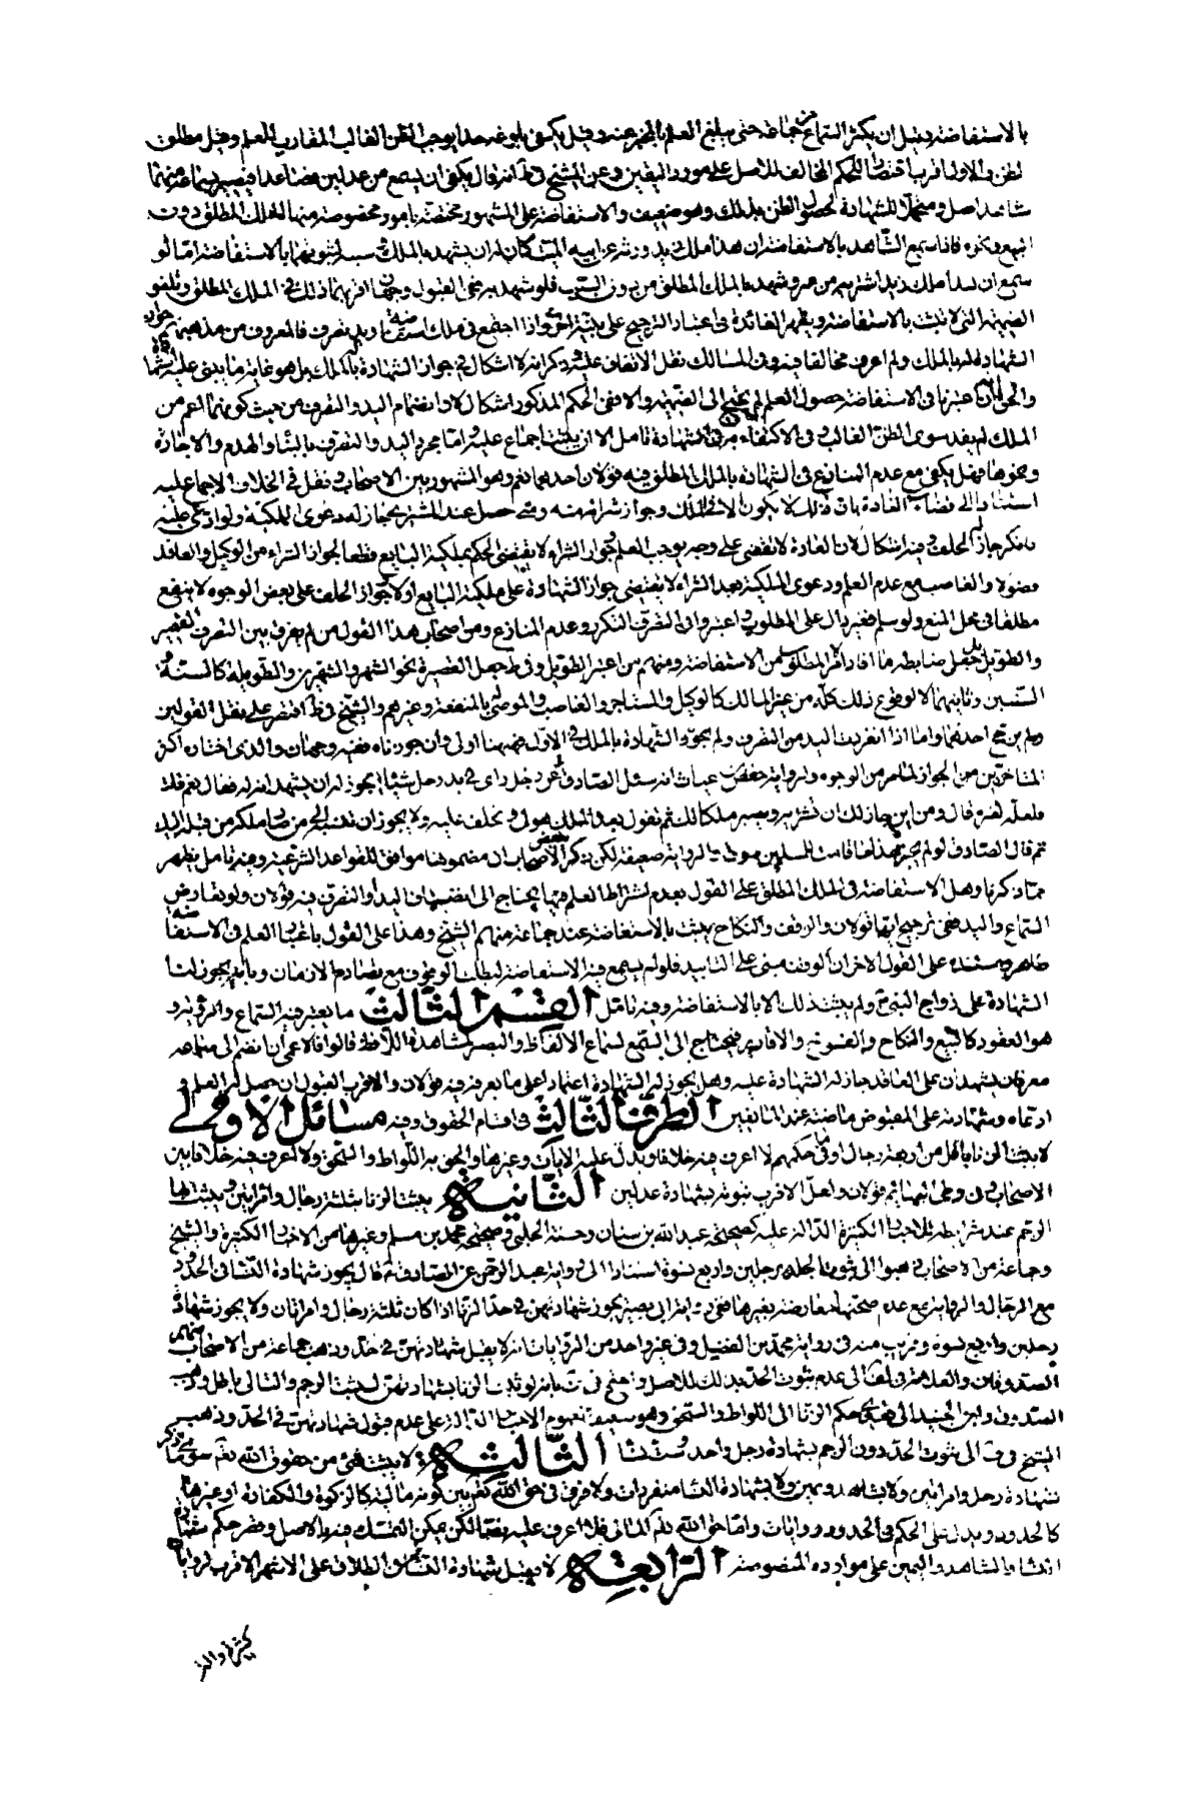 بالاستفاضة وقيل ان يكثر السماع من جماعة حتى يبلغ العلم بالمخبر عنه وقيل يكفى بلوغه حدا يوجب الظن الغالب المقارب للعلم وقيل مطلق
الظن والاول اقرب اقتصارا للحكم المخالف للاصل على مورد اليقين وعن الشيخ فى ط انه قال يكفى ان يسمع من عدلين فصاعدا فيصير بسماعه منهما
شاهد اصل ومتحملا للشهادة لحصول الظن بذلك وهو ضعيف والاستفاضة على المشهور مختصة بامور مخصوصة منها الملك المطلق دون
البيع ونحوه فاذا سمع الشاهد بالاستفاضة ان هذا ملك زيد ورثه عن ابيه الميت كان له ان يشهد بالملك و سببه لثبوتهما بالاستفاضة اما لو
سمع ان هذا ملك زيد اشتريه من عمرو شهد بالملك المطلق من دون السبب فلو شهد به ففى القبول وجهان اقربهما ذلك فى الملك المطلق وتلغو
الضميمة التى لا تثبت بالاستفاضة ويظهر الفائدة فى اعتبار الترجيح على بينة اخرى واذا اجتمع فى ملك استفاضة ويد وتصرف فالمعروف من مذهبهم جواز
الشهادة له بالملك ولم اعرف مخالفا فيه وفى المسالك نقل الاتفاق عليه وذكر انه لا اشكال فى جواز الشهادة بالملك بل هو غاية ما يبنى عليه الشهادة
والحق ان اعتبرنا فى الاستفاضة حصول العلم لم يحتج الى الضميمة والا ففى الحكم المذكور اشكال لان انضمام اليد والتصرف من حيث كونهما اعم من
الملك لم يفد سوى الظن الغالب وفى الاكتفاء به فى الشهادة تامل الا ان يثبت اجماع عليه واما مجرد اليد والتصرف بالبناء والهدم والاجارة
ونحوها فهل يكفى مع عدم المنازع فى الشهادة بالملك المطلق فيه قولان احدهما نعم وهو المشهور بين الاصحاب ونقل فى الخلاف الاجماع عليه
استنادا الى قضاء العادة بان ذلك لا يكون الا فى الملك وجواز شرائه منه ومتى حصل عند المشترى جاز له دعوى الملكية ولو ادعى عليه
فانكر جاز له الحلف وفيه اشكال لان العادة لا تقضى على وجه يوجب العلم وجواز الشراء لا يقتضى الحكم بملكية البايع قطعا لجواز الشراء من الوكيل والعاقد
فضولا والغاصب مع عدم العلم ودعوى الملكية بعد الشراء لا يقتضى جواز الشهادة على ملكية البايع اولا وجواز الحلف على بعض الوجوه لا ينفع
مطلقا فى محل المنع ولو سلم فغير دال على المطلوب واعتبروا فى التصرف التكرر وعدم المنازع ومن اصحاب هذا القول من لم يفرق بين التصرف القصير
والطويل بل جعل ضابطه ما افاد الامر المطلوب من الاستفاضة ومنهم من اعتبر الطويل وفى ط جعل القصيرة نحو الشهر والشهرين والطويلة كالسنة و
السنتين وثانيهما لا لوقوع ذلك كله من غير المالك كالوكيل والمستاجر والغاصب والموصى له بالمنفعة وغيرهم والشيخ فى ط اقتصر على نقل القولين
ولم يرجح احدهما واما اذا انفردت اليد من التصرف ولم يجوز الشهادة بالملك فى الاول فههنا اولى وان جوزناه ففيه وجهان والذى اختاره اكثر
المتاخرين من الجواز لما مر من الوجوه ولرواية حفص بن غياث انه سئل الصادق ع عن رجل راى فى يد رجل شيئا ايجوز له ان يشهد انه له فقال نعم قلت
فلعله لغيره قال ومن اين جاز لك ان تشتريه ويصير ملكا لك ثم تقول بعد الملك هو لى وتحلف عليه ولا يجوز ان تنسبه الى من صار ملكه من قبله اليك
ثم قال الصادق لو لم يجز هذا ما قامت للمسلمين سوق والرواية ضعيفة لكن ذكر بعض الاصحاب ان مضمونها موافق للقواعد الشرعية وفيه تامل يظهر
مما ذكرنا وهل الاستفاضة فى الملك المطلق على القول بعدم اشتراط العلم فيها يحتاج الى انضمام اليد والتصرف فيه قولان ولو تعارض
السماع واليد ففى ترجيح ايهما قولان والوقف والنكاح يثبت بالاستفاضة عند جماعة منهم الشيخ وهذا على القول باعتبار العلم فى الاستفاضة
ظاهر ومستنده على القول الاخر ان الوقف مبنى على التابيد فلو لم يسمع فيه الاستفاضة لبطلت الوقوف مع تصادم الازمان وبانه يجوز لنا
الشهادة على زواج النبى ص ولم يثبت ذلك الا بالاستفاضة وفيه تامل القسم الثالث ما يعتبر فيه السماع والرؤية و
هو العقود كالبيع والنكاح والفسوخ والاقارير فيحتاج الى السمع لسماع الالفاظ والبصر لمشاهدة اللافظ قالوا فالاعمى ان انضم الى سماعه
معرفان يشهدان على العاقد جاز له الشهادة عليه وهل يجوز له الشهادة اعتمادا على ما يعرفه فيه قولان والاقرب القبول ان حصل له العلم و
ادعاه وشهادته على المقبوض ماضية عند المانعين الطرف الثالث فى اقسام الحقوق وفيه مسائل الاولى
لا يثبت الزنا باقل من اربعة رجال او فى حكمهم لا اعرف فيه خلافا ويدل عليه الايات وغيرها والحق به اللواط والسحق ولا اعرف فيه خلافا بين
الاصحاب وفى وطى البهائم قولان ولعل الاقرب ثبوته بشهادة عدلين الثانية يثبت الزنا بثلثة رجال وامراتين ويثبت بها
الرجم عند شرائطه للاخبار الكثيرة الدالة عليه كصحيحة عبد الله بن سنان وحسنة الحلبى وصحيحة محمد بن مسلم وغيرها من الاخبار الكثيرة والشيخ
وجماعة من الاصحاب ذهبوا الى ثبوت الجلد برجلين واربع نسوة استنادا الى رواية عبد الرحمن عن الصادق ع قال يجوز شهادة النساء فى الحدود
مع الرجال والرواية مع عدم صحتها معارضة بغيرها ففى رواية ابى بصير يجوز شهادتهن فى حد الزنا اذا كان ثلثة رجال وامراتان ولا يجوز شهادة
رجلين واربع نسوة وقريب منه فى رواية محمد بن الفضيل وفى غير واحد من الروايات انه لا يقبل شهادتهن فى حد وذهب جماعة من الاصحاب منهم
الصدوقان والعلامة فى لف الى عدم ثبوت الحد بذلك للاصل واحتج فى لف بانه لو ثبت الزنا بشهادتهن لثبت الرجم والتالى باطل وذهب
الصدوق وابن الجنيد الى تعدى حكم الزنا الى اللواط والسحق وهو ضعيف لعموم الاخبار الدالة على عدم قبول شهادتهن فى الحدود وذهب
الشيخ فى ف الى ثبوت الحد دون الرجم بشهادة رجل واحد وست نساء الثالثة لا يثبت شئ من حقوق الله تعالى سوى ما ذكر
بشهادة رجل وامراتين ولا بشاهد ويمين ولا بشهادة النساء منفردات ولا فرق فى حق الله تعالى بين كونه مالية كالزكوة والكفارة او غيرها
كالحدود ويدل على الحكم فى الحدود روايات واما حق الله تعالى المالى فلا اعرف عليه نصا لكن يمكن التمسك فيه بالاصل وقصر حكم شهادة
النساء والشاهد واليمين على موارده المنصوصة الرابعة لا يقبل شهادة النساء فى الطلاق على الاشهر الاقرب لروايات
كثيرة والتر